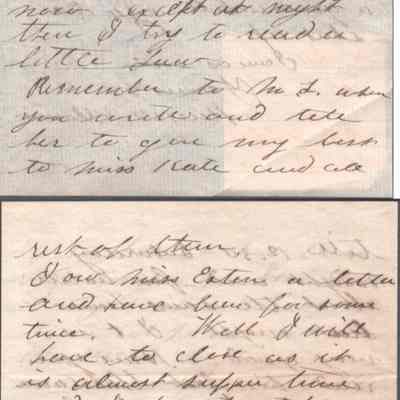 now except at night
then I try to read a
little Law
Remember to M L when
you write and tell
her to give my best
to Miss Kate and all
rest of them
I owe Miss Esten a letter
and have been for some
time. Well I will
have to close as it
is almost supper time